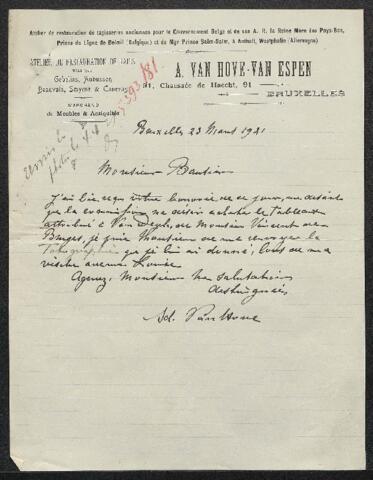 Atelier de restauration de tapisseries anciennes pour le Gouvernement Belge et de ses A. R. la Reine Mère des Pays-Bas,
Prince de Ligne de Beloeil (Belgique) et de Mgr Prince Salm-Salm, à Anholt, Westphalie (Allemagne)
ATELIER DE RESTAURATION DE TAPIS
Gobelins, Aubusson,
Beauvais, Smyrne & Canevas
MARCHAND
de Meubles & Antiquités
A. VAN HOVE-VAN ESPEN
91, Chaussée de Haecht, 91
BRUXELLES
5393/81
Bruxelles 23 Mars 1921
Monsieur Bautier
J'ai bien reçu votre honorée de ce jour, me disant
que la commission ne désire acheter le Tableau
attribué à Van Dyck, de Monsieur Vincent de
Bruges, je prie Monsieur de me renvoyer la
Photographie que je lui ai donné, lors de ma
visite
Agréez, Monsieur mes salutations
distinguées
Ad. Van Hove